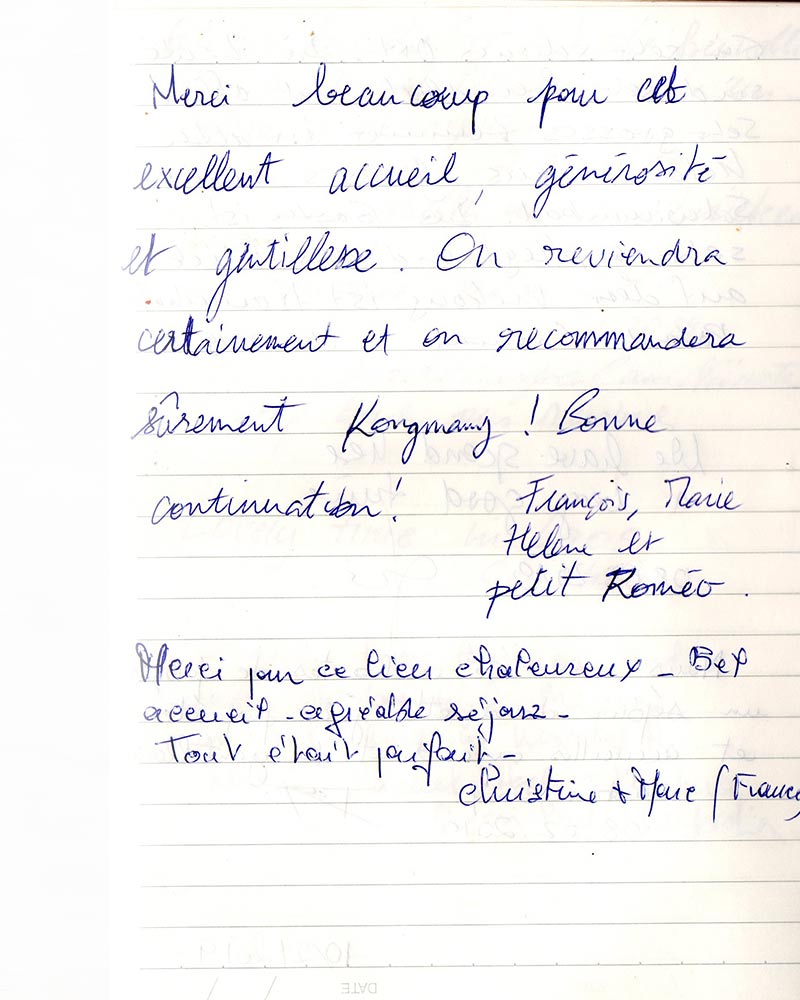 Merci beaucoup pour cet
excellent accueil, générosité
et gentillesse. On reviendra
certainement et on recommandera
sûrement Kongmany ! Bonne
continuation !
François, Marie
Helene et
petit Roméo.
Merci pour ce lieu chaleureux - Bel
accueil - agréable séjour -
Tout était parfait -
Christine + Marc (France
DATE